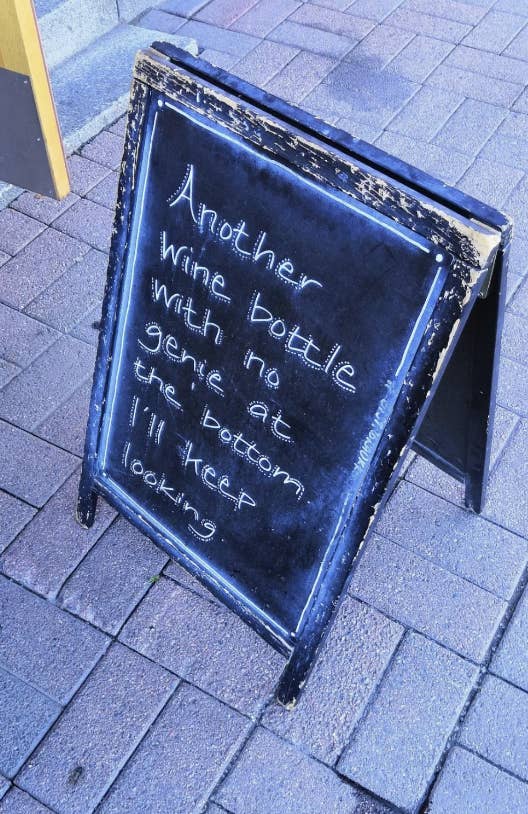 Another
wine bottle
with no
genie at
the bottom
I'll keep
looking